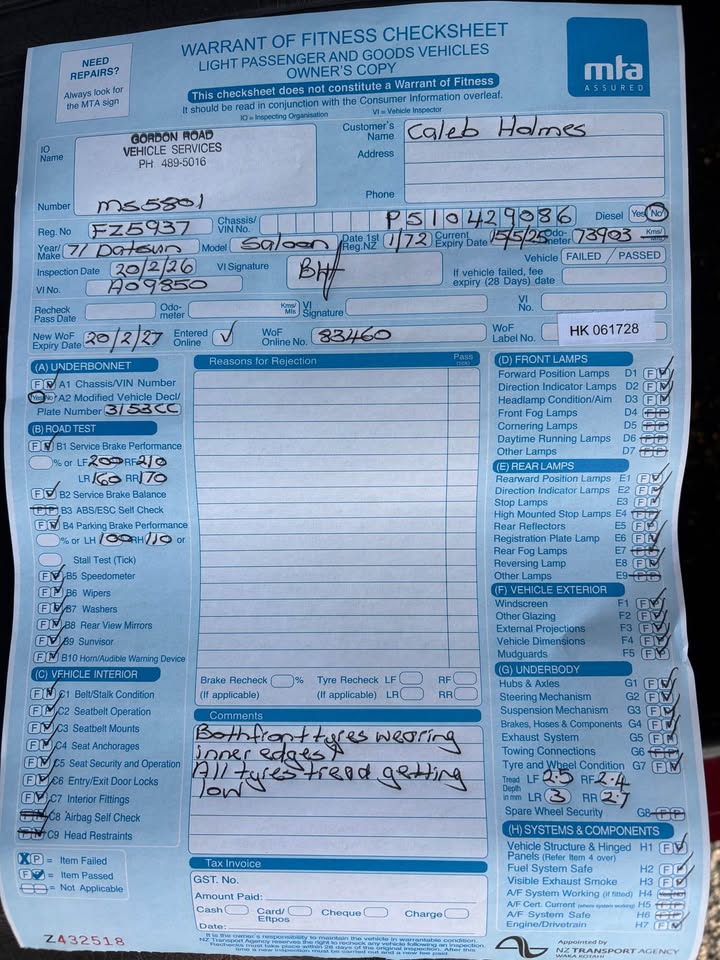 NEED REPAIRS?
Always look for the MTA sign
WARRANT OF FITNESS CHECKSHEET
LIGHT PASSENGER AND GOODS VEHICLES
OWNER'S COPY
This checksheet does not constitute a Warrant of Fitness
It should be read in conjunction with the Consumer Information overleaf.
IO = Inspecting Organisation VI = Vehicle Inspector
mta
ASSURED
IO Name
GORDON ROAD
VEHICLE SERVICES
PH 489-5016
Number MS5801
Customer's Name Caleb Holmes
Address
Phone
Reg. No FZ5937 Chassis/ VIN No. P510429086 Diesel Yes No
Year/ Make 71 Datsun Model Saloon Date 1st Reg.NZ 1/72 Current Expiry Date 15/5/25 Odometer 73903 Kms/
Inspection Date 20/2/26 VI Signature Vehicle FAILED / PASSED
VI No. A09850 If vehicle failed, fee expiry (28 Days) date
Recheck Pass Date Odometer Kms/ Mls VI Signature VI No.
New WoF Expiry Date 20/2/27 Entered Online WoF Online No. 83460 WoF Label No. HK 061728
(A) UNDERBONNET
F P A1 Chassis/VIN Number
Yes No A2 Modified Vehicle Decl/
Plate Number 3153CC
(B) ROAD TEST
F P B1 Service Brake Performance
% or LF 200 RF 210
LR 160 RR 170
F P B2 Service Brake Balance
F P B3 ABS/ESC Self Check
F P B4 Parking Brake Performance
% or LH 100 RH 110 or
Stall Test (Tick)
F P B5 Speedometer
F P B6 Wipers
F P B7 Washers
F P B8 Rear View Mirrors
F P B9 Sunvisor
F P B10 Horn/Audible Warning Device
(C) VEHICLE INTERIOR
F P C1 Belt/Stalk Condition
F P C2 Seatbelt Operation
F P C3 Seatbelt Mounts
F P C4 Seat Anchorages
F P C5 Seat Security and Operation
F P C6 Entry/Exit Door Locks
F P C7 Interior Fittings
F P C8 Airbag Self Check
F P C9 Head Restraints
X P = Item Failed
F = Item Passed
= Not Applicable
Z432518
Reasons for Rejection Pass
Brake Recheck % Tyre Recheck LF RF
(If applicable) (If applicable) LR RR
Comments
Both front tyres wearing
inner edges
All tyres tread getting
low
Tax Invoice
GST. No.
Amount Paid:
Cash Card/ Eftpos Cheque Charge
Date:
It is the owner's responsibility to maintain the vehicle in warrantable condition.
NZ Transport Agency reserves the right to recheck any vehicle following an inspection.
Rechecks must take place within 28 days of the original inspection. After this
time a new inspection must be carried out and a new fee paid.
(D) FRONT LAMPS
Forward Position Lamps D1 F P
Direction Indicator Lamps D2 F P
Headlamp Condition/Aim D3 F P
Front Fog Lamps D4 F P
Cornering Lamps D5 F P
Daytime Running Lamps D6 F P
Other Lamps D7 F P
(E) REAR LAMPS
Rearward Position Lamps E1 F P
Direction Indicator Lamps E2 F P
Stop Lamps E3 F P
High Mounted Stop Lamps E4 F P
Rear Reflectors E5 F P
Registration Plate Lamp E6 F P
Rear Fog Lamps E7 F P
Reversing Lamp E8 F P
Other Lamps E9 F P
(F) VEHICLE EXTERIOR
Windscreen F1 F P
Other Glazing F2 F P
External Projections F3 F P
Vehicle Dimensions F4 F P
Mudguards F5 F P
(G) UNDERBODY
Hubs & Axles G1 F P
Steering Mechanism G2 F P
Suspension Mechanism G3 F P
Brakes, Hoses & Components G4 F P
Exhaust System G5 F P
Towing Connections G6 F P
Tyre and Wheel Condition G7 F P
Tread Depth in mm LF 2.5 RF 2.4
LR 3 RR 2.7
Spare Wheel Security G8 F P
(H) SYSTEMS & COMPONENTS
Vehicle Structure & Hinged H1 F P
Panels (Refer Item 4 over)
Fuel System Safe H2 F P
Visible Exhaust Smoke H3 F P
A/F System Working (if fitted) H4
A/F Cert. Current (where system working) H5 F P
A/F System Safe H6 F P
Engine/Drivetrain H7 F P
Appointed by
NZ TRANSPORT AGENCY
WAKA KOTAHI